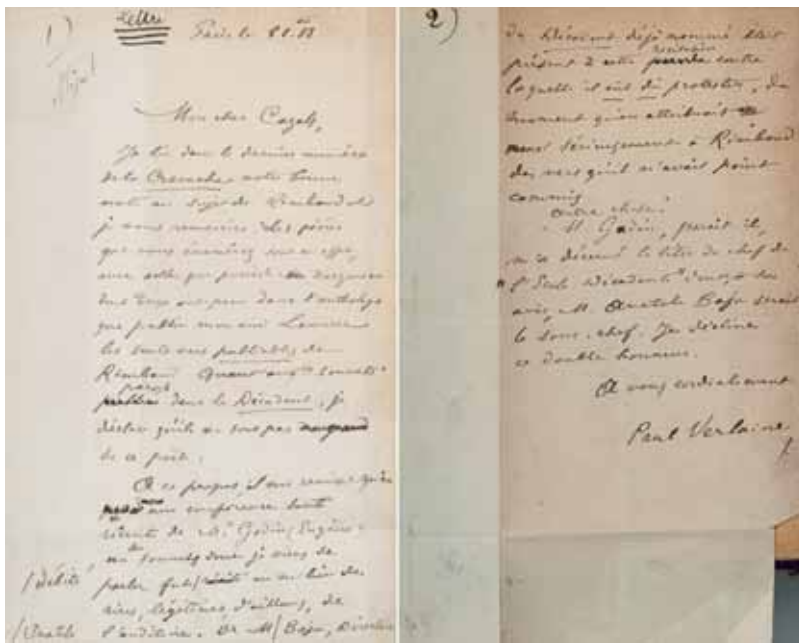 1)
Lettre
Paris le
Mon cher Cazals,
Je lis dans le dernier numéro
de la Cravache votre bonne
note au sujet de Rimbaud et
je vous remercie. Les pièces
que vous énumérez sont en effet,
avec celles
que dans l'anthologie
que publia mon ami Lemerre
les seuls vers publiables de
Rimbaud. Quant aux "sonnets"
parus
dans le Décadent, je
déclare qu'ils ne sont pas
de ce poète.
A ce propos, il me revient qu'en
une conférence toute
récente de M. Godin (Eugène)
sonnets dont je viens de
parler
débité
rires, légitimes d'ailleurs, de
/Anatole
l'auditoire. Or M/ Baju, Directeur
2)
du Décadent déjà nommé était
présent à cette contre
laquelle il eût dû protester, du
moment qu'on attribuait
à Rimbaud
des vers qu'il n'avait point
commis.
Autre chose :
M. Godin, paraît-il,
m'a décerné le titre de chef de
l'École décadente
M. Anatole Baju serait
le sous-chef. Je décline
ce double honneur.
A vous cordialement
Paul Verlaine